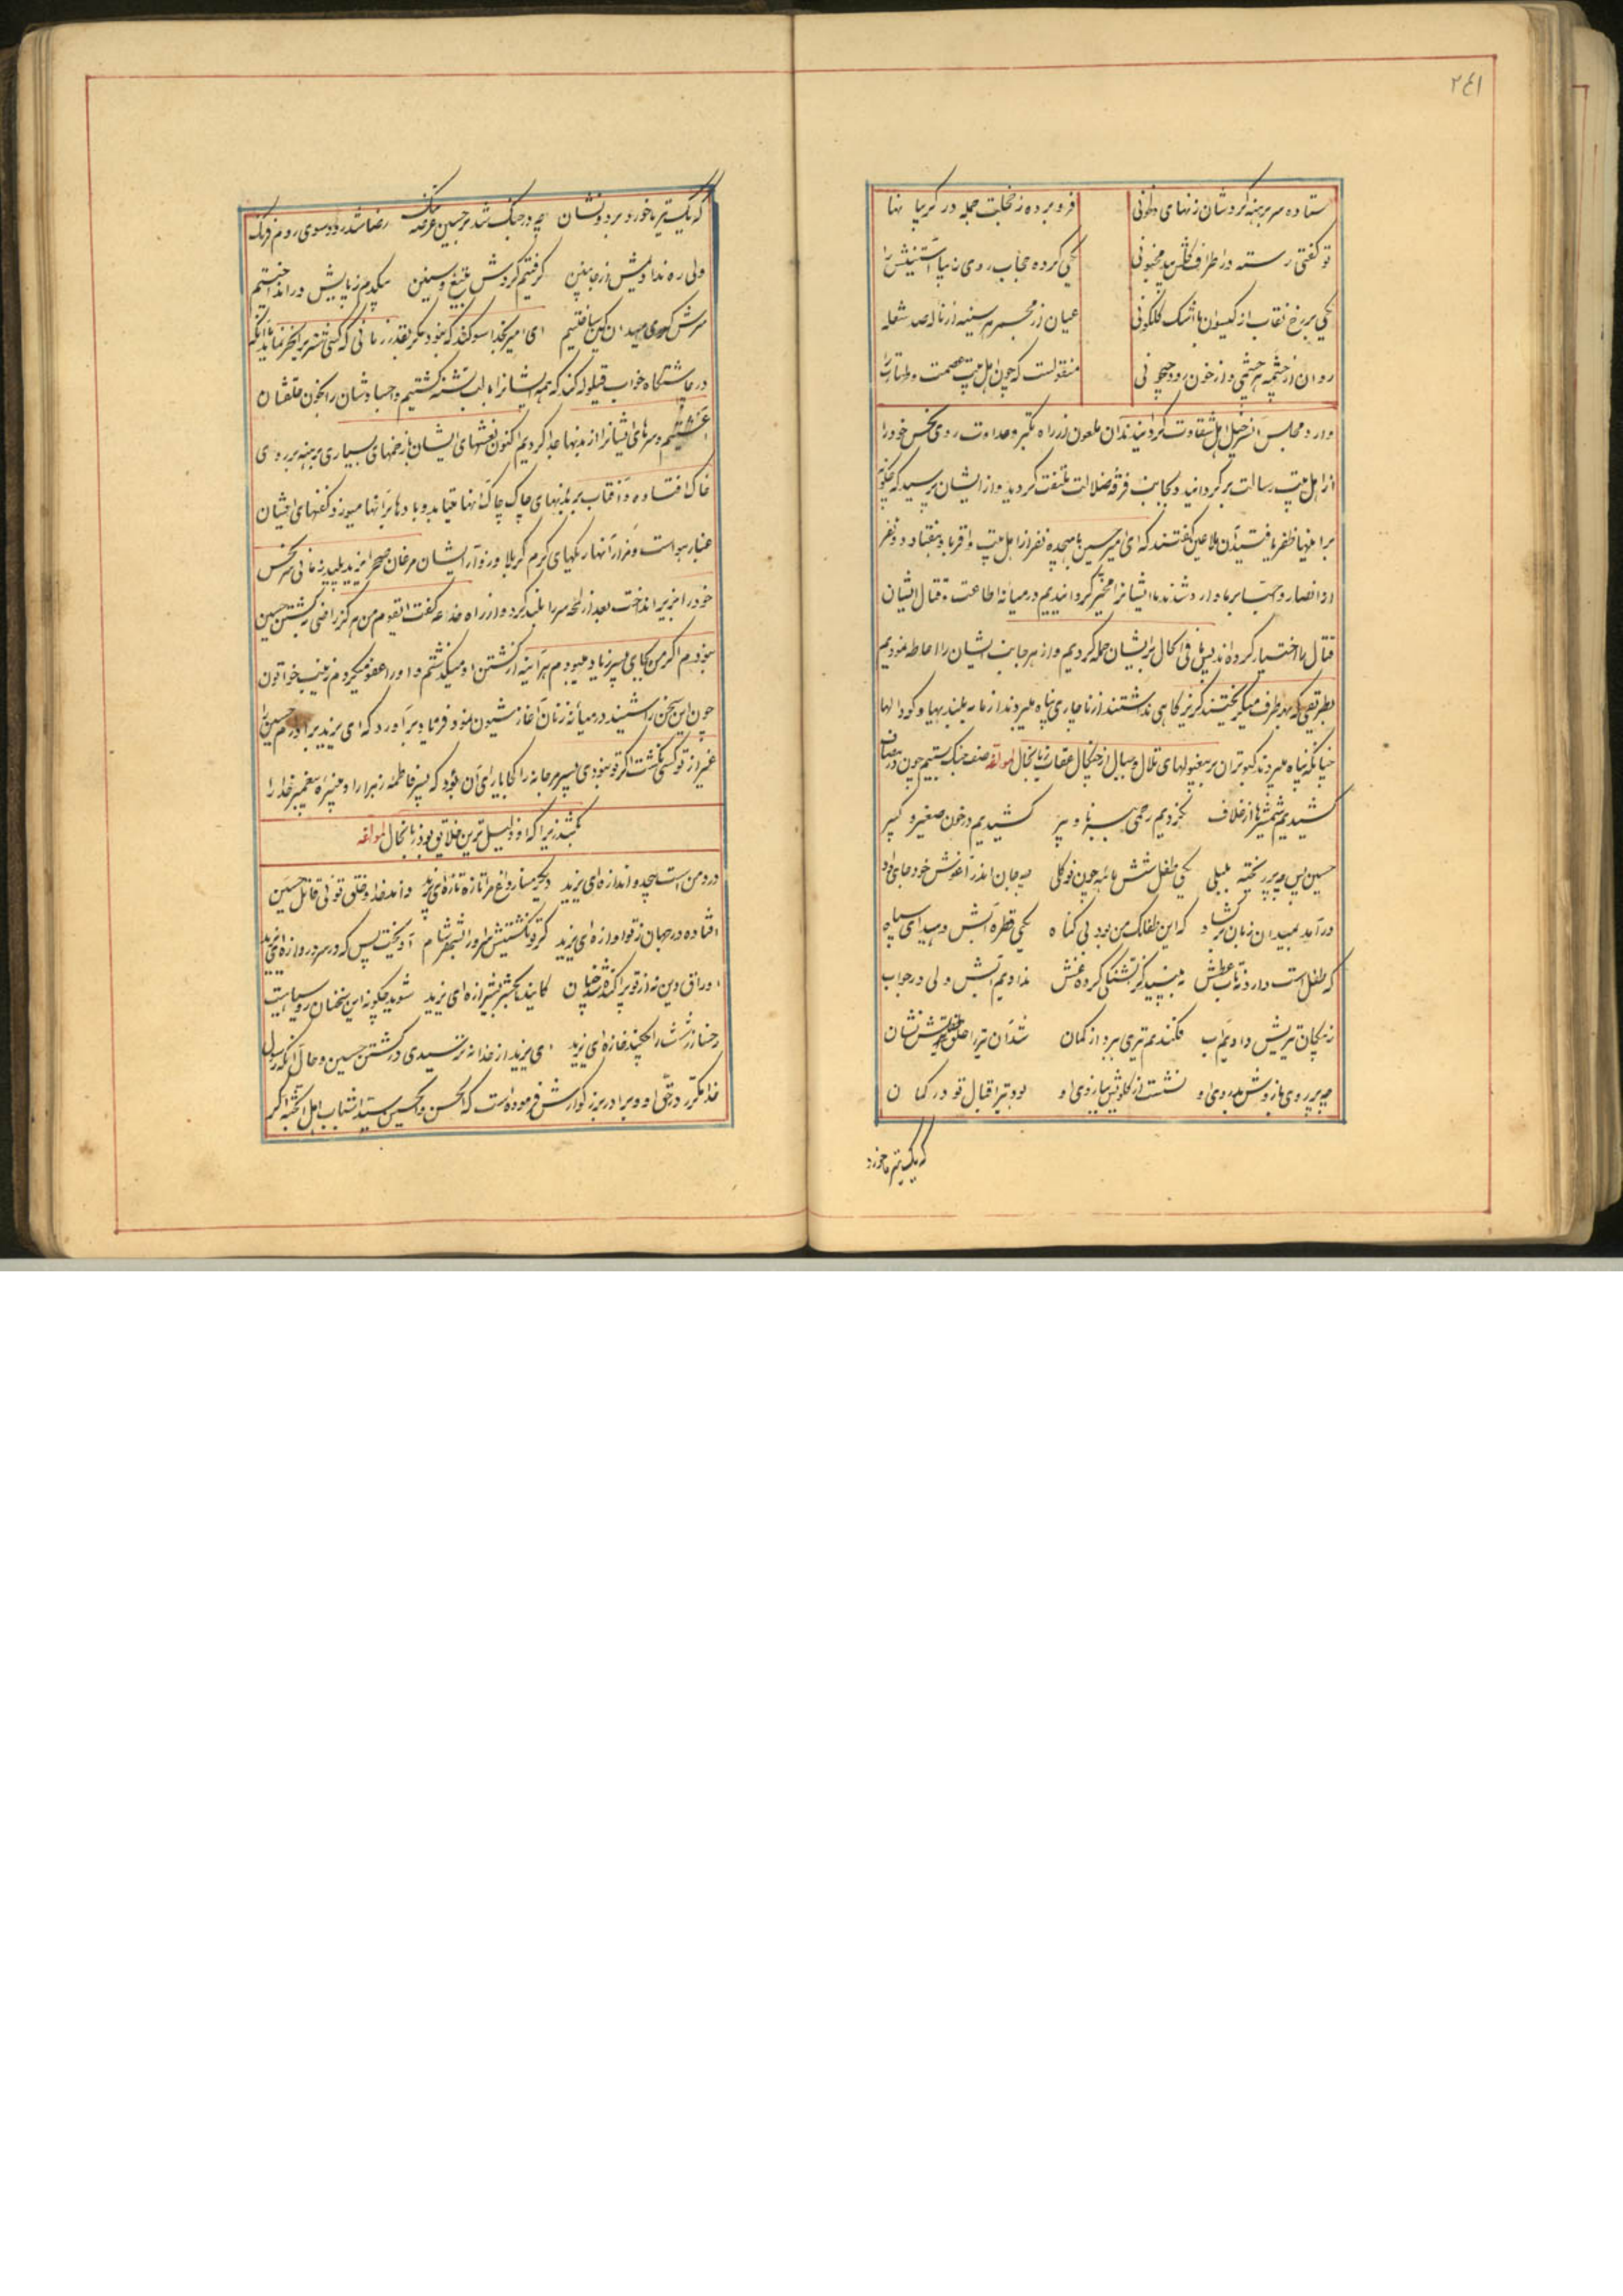 ۲۴۱
ستاده سر برهنه گردشان زنهای خاتونی فرو برده ز خجلت جمله در گریبانها
تو گفتی رسته در اطراف گلشن بید مجنونی یکی کرده حجاب روی زیبا آستینش را
یکی بر رخ نقاب از گیسوان با اشک گلگونی عیان از مجمر هر سینه از ناله صد شعله
روان از چشمه هر چشمی دو از خون رود جیحونی منقولست که چون اهل بیت عصمت و طهارت را
وارد مجلس آن سرخیل اهل شقاوت گردانیدند آن ملعون از راه تکبر و عداوت روی نحس خود را
از اهل بیت رسالت برگردانید و بجانب فرقه ضلالت ملتفت گردید و از ایشان پرسید که چگونه
بر اینها ظفر یافتید آن ملاعین گفتند که ای امیر حسین با هیجده نفر از اهل بیت و اقربا و هفتاد و دو نفر
از انصار و احبا بر ما وارد شدند ما ایشانرا مخیر گردانیدیم در میانه اطاعت و قتال ایشان
قتال را اختیار کردند پس ما فی الحال بر ایشان حمله کردیم و از هر جانب ایشان را احاطه نمودیم
بطریقی که بهر طرف میگریختند گریزگاهی نداشتند از ناچاری پناه میبردند از ما به بلندیها و گودالها
چنانکه پناه میبرند کبوتران بر بیغولهای تلال و جبال از چنگال عقاب زبانحال لمولفه صف جنگ بستیم چون در مصاف
کشیدیم شمشیرها از غلاف نکردیم رحمی به برنا و پیر کشیدیم در خون صغیر و کبیر
حسین پس چه پرریخته بلبلی یکی طفل شش ماهه چون نوگلی چه جان اندر آغوش خود جای داد
درآمد بمیدان زبان برگشاد که این طفلک من بود بی گناه یکی قطره آبش دهید ای سپاه
که طفل است دارد تاب عطش ببینید کز تشنگی کرده غش ندادیم آبش ولی در جواب
ز پیکان تیریش دادیم آب فکندیم تیری برو از کمان شد آن تیر را حلق خشکش نشان
چه بر روی بازوش بد روی او نشست از گلویش ببازوی او بود تیر اقبال تو در کمان
که یک تیر ما خورد
که یک تیر ما خورد بر دو نشان چه در جنگ شد بر حسین عرصه تنگ رضا شد رود سوی روم و فرنگ
ولی ره ندادیمش از جانبین گرفتیم گردش بتیغ و سنین بیکدم ز پایش درانداختیم
سرش گوی میدان کین ساختیم ای امیر بخدا سوگند که نبود مگر بقدر زمانی که کسی شتر را نحر نماید یا آنکه
در چاشتگاه خواب قیلوله کند که همه ایشانرا با لب تشنه کشتیم و اجسادشان را بخون حلقشان
آغشتیم و سرهای ایشانرا از بدنها جدا کردیم اکنون نعشهای ایشان با زخمهای بسیاری برهنه بر روی
خاک افتاده و آفتاب بر بدنهای چاک چاک آنها میتابد و بادها بر آنها میوزد و کفنهای ایشان
غبار هواست و مزار آنها ریگهای گرم کربلا و زوار ایشان مرغان صحرا یزید پلید زمانی سر نحس
خود را بزیر انداخت بعد از لحه سر را بلند کرد و از راه خدعه گفت ای قوم من هرگز راضی بکشتن حسین
نبودم اگر من بجای پسر زیاد میبودم هر آینه از کشتن او میگذشتم و او را عفو میکردم زینب خاتون
چون این سخن را شنید در میانه زنان آغاز شیون نمود و فریاد برآورد که ای یزید برادرم حسین را
غیر از تو کسی نکشت اگر تو نبودی پسر مرجانه را کجا یارای آن بود که پسر فاطمه زهرا را و نبیره پیغمبر خدا را
بکشد زیرا که او ذلیل ترین خلایق بود زبانحال لمولفه
درد من است بیحد و اندازه ای یزید دیگر مساز داغ مرا تازه ای یزید داند خدا و خلق توئی قاتل حسین
افتاده در جهان ز تو آوازه ای یزید گر تو نکشتیش سر او را بشهر شام آویخت پس که در سر دروازه ای یزید
اوراق دین نه از تو پراکنده شد چنان کاید بحشر بشیرازه ای یزید شوید چگونه این سخنان رو سیاهیت
رخسار زشت را چکند غازه ای یزید ای یزید از خدا نترسیدی در کشتن حسین و حال آنکه رسول
خدا مکرر در حق او و برادر بزرگوارش فرموده است که الحسن و الحسین سیدا شباب اهل الجنه اگر